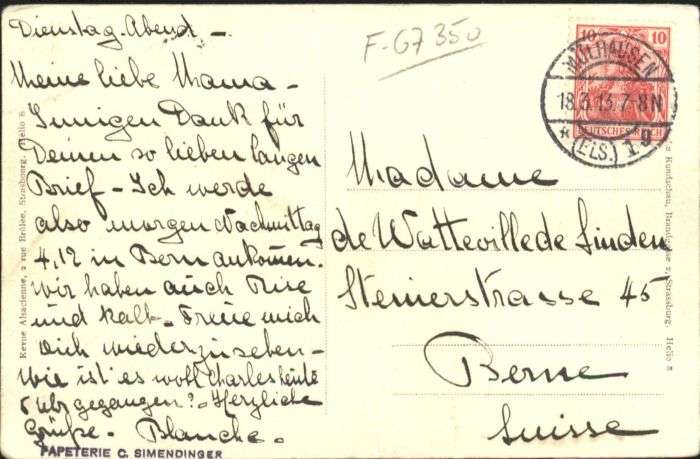 Dienstag-Abend -
F-67 350
Meine liebe Mama -
Innigen Dank für
Deinen so lieben langen
Brief - Ich werde
also morgen Nachmittag
4.12 in Bern ankommen.
Wir haben auch Bise
und kalt - Freue mich
Dich wiederzusehen -
Wie ist es wohl Charles heute
5 Uhr gegangen? - Herzliche
Grüße - Blanche -
PAPETERIE C. SIMENDINGER
Revue Alsacienne, 2 rue Brûlée, Strasbourg. Helio 8
10 10
DEUTSCHES REICH
MÜLHAUSEN
18.3.13. 7-8N
* (ELS.) 1 g
Madame
de Watteville de Linden
Steinerstrasse 45
Berne
Suisse
Rundschau, Brandgasse 2, Strassburg. Helio 8